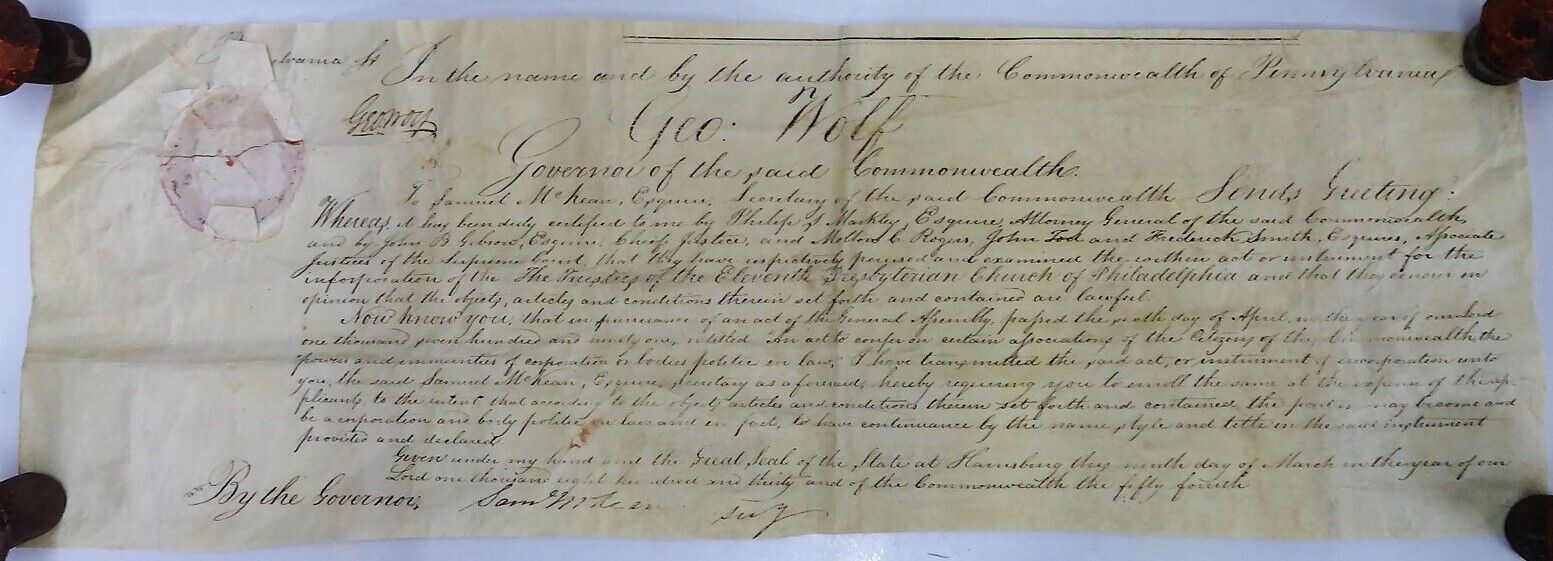 In the name and by the authority of the Commonwealth of Pennsylvania
Geo Wolf
Geo: Wolf
Governor of the said Commonwealth.
To Samuel McKean, Esquire, Secretary of the said Commonwealth Sends Greeting:
Whereas, it has been duly certified to me by Philip S Markley, Esquire, Attorney General of the said Commonwealth,
and by John B Gibson, Esquire, Chief Justice, and Molton C. Rogers, John Tod and Frederick Smith, Esquires, Associate
Justices of the Supreme Court, that they have respectively perused and examined the within act or instrument for the
incorporation of the The Trustees of the Eleventh Presbyterian Church of Philadelphia and that they concur in
opinion that the objects, articles and conditions therein set forth and contained are lawful.
Now know you, that in pursuance of an act of the General Assembly, passed the sixth day of April, in the year of our Lord
one thousand seven hundred and ninety one, intitled "An act to confer on certain associations of the Citizens of this Commonwealth the
powers and immunities of corporation or bodies politic in law," I have transmitted the said act, or instrument of incorporation unto
you, the said Samuel McKean, Esquire, secretary as aforesaid, hereby requiring you to enroll the same at the expense of the ap-
plicants to the intent that according to the objects articles and conditions therein set forth and contained, the parties may become and
be a corporation and body politic in law and in fact, to have continuance by the name, style and title in the said instrument
provided and declared.
Given under my hand and the Great Seal of the State at Harrisburg this ninth day of March in the year of our
Lord one thousand eight hundred and thirty and of the Commonwealth the fifty fourth
By the Governor, Saml McKean Secy